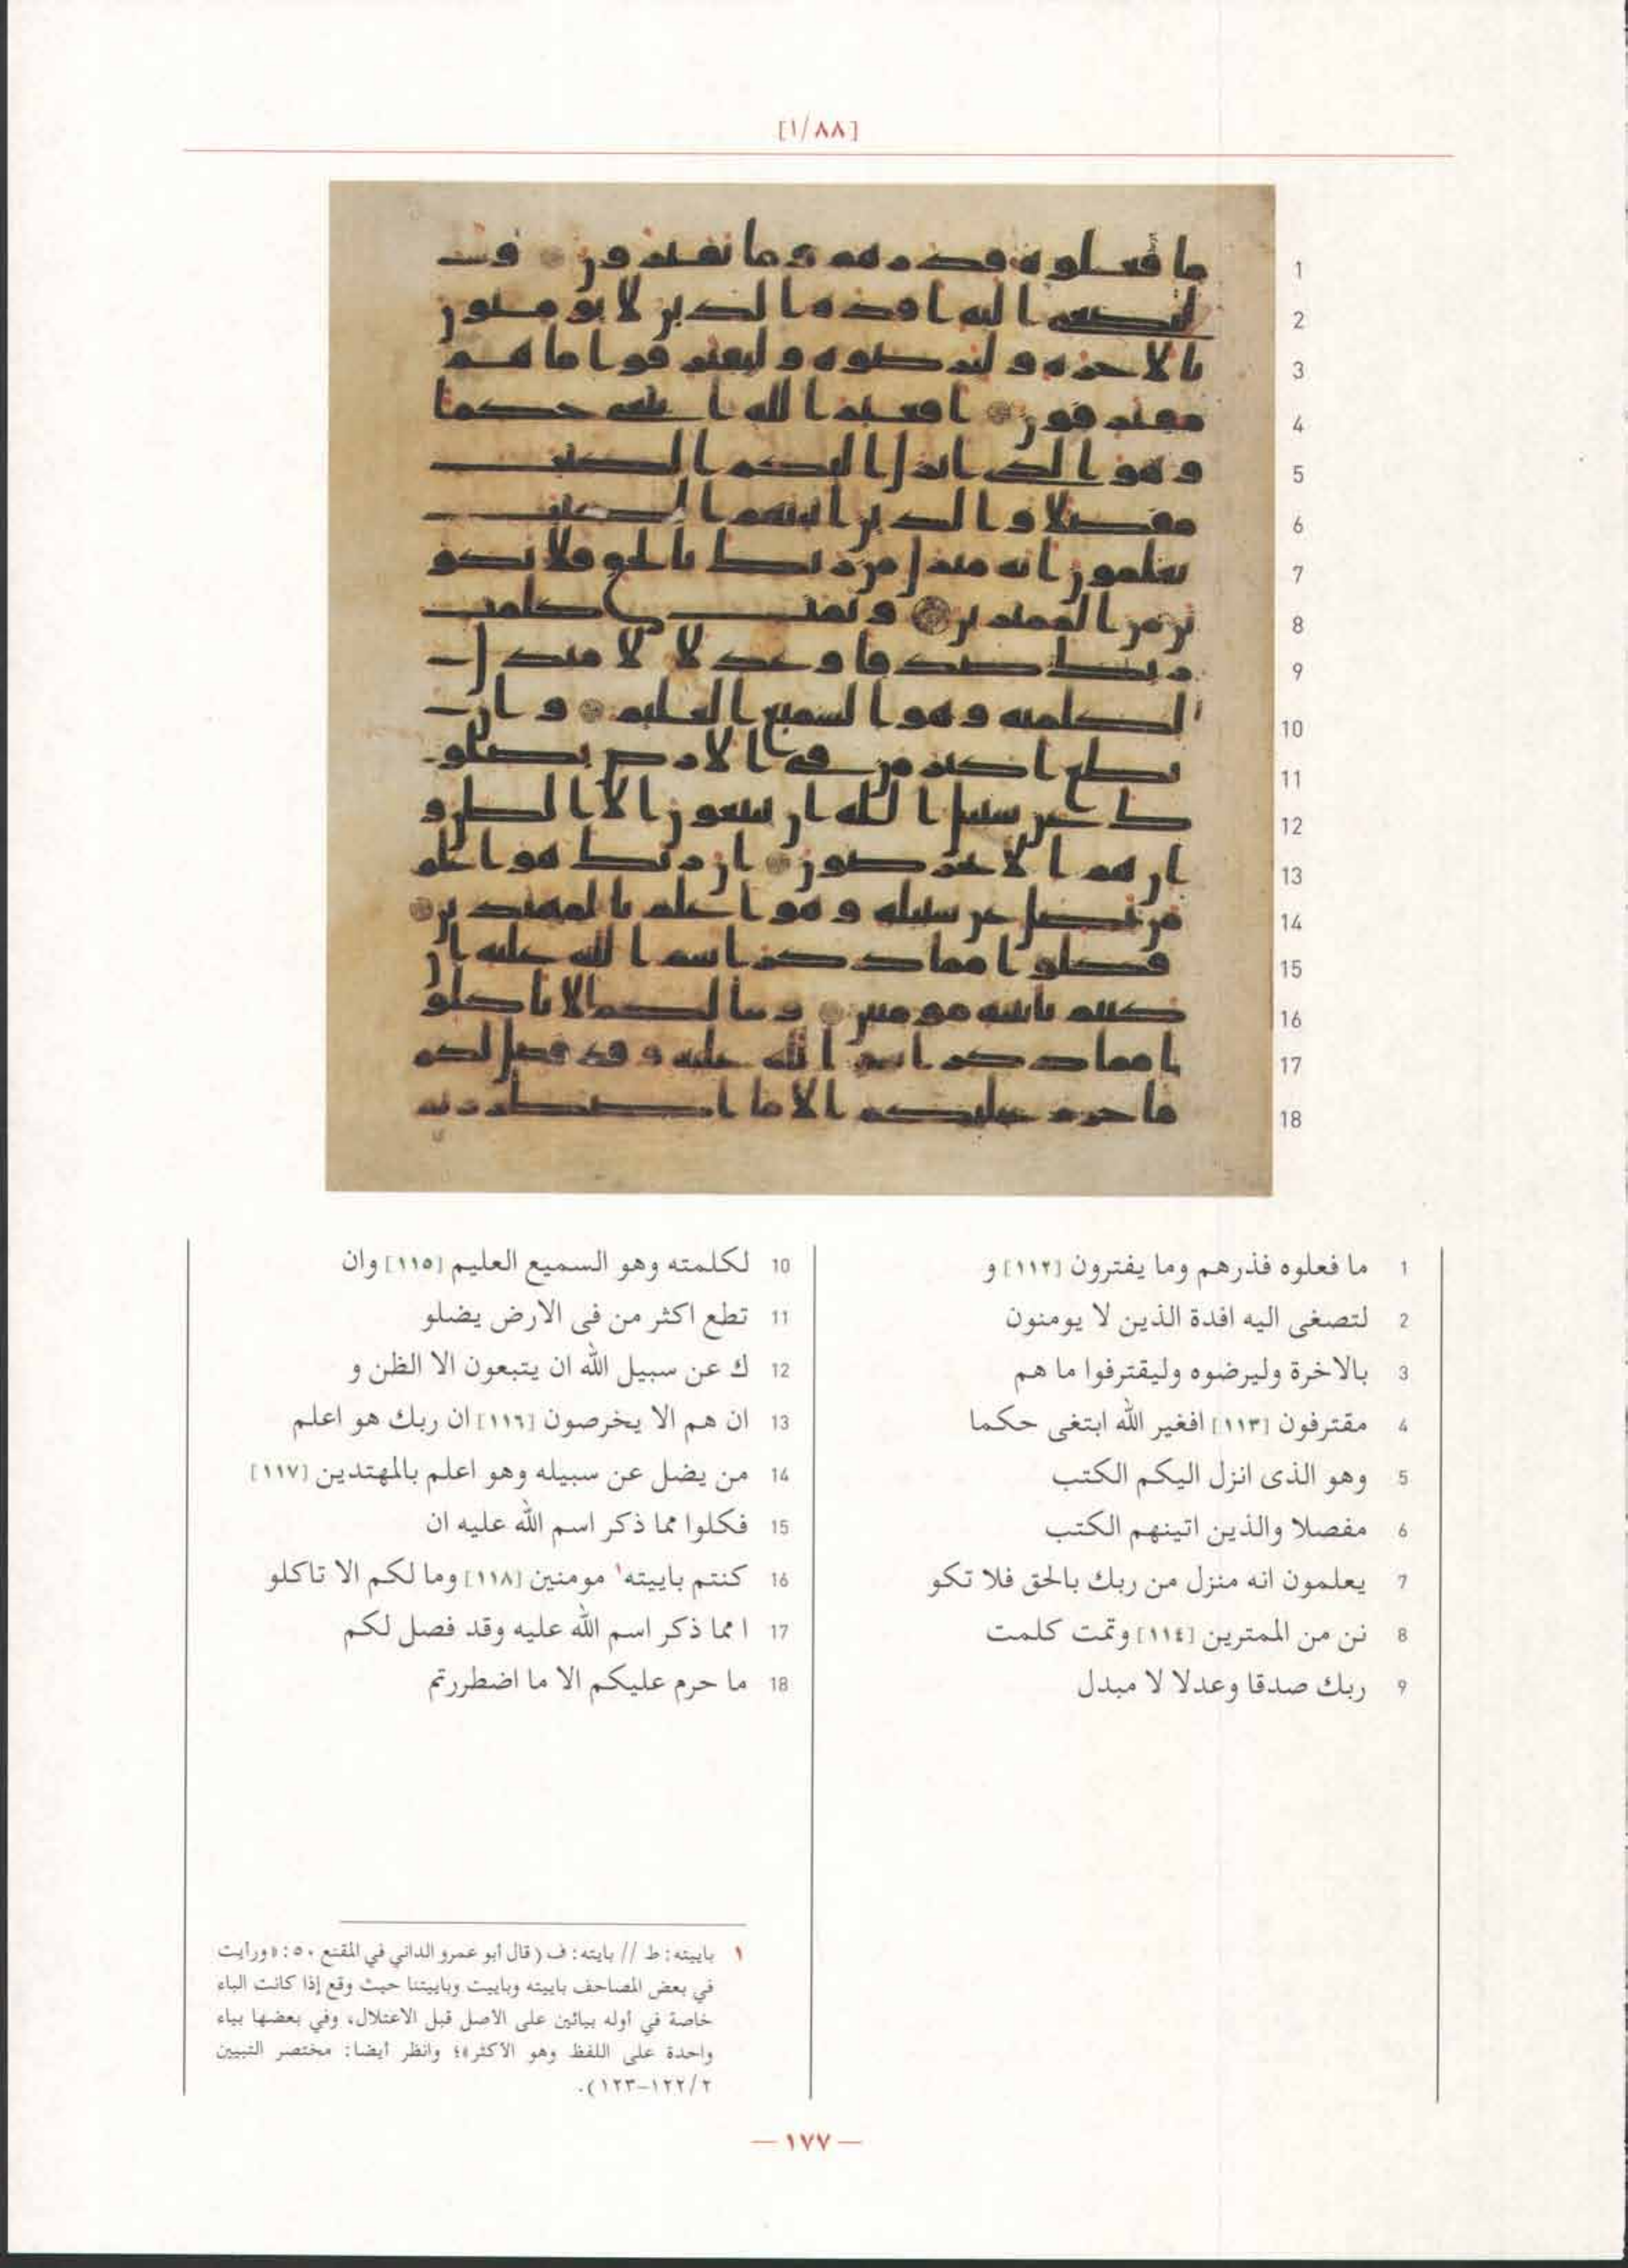 [١/٨٨]
1 ما فعلوه فذرهم وما يفترون [١١٢] و
2 لتصغى اليه افدة الذين لا يومنون
3 بالاخرة وليرضوه وليقترفوا ما هم
4 مقترفون [١١٣] افغير الله ابتغى حكما
5 وهو الذى انزل اليكم الكتب
6 مفصلا والذين اتينهم الكتب
7 يعلمون انه منزل من ربك بالحق فلا تكو
8 نن من الممترين [١١٤] وتمت كلمت
9 ربك صدقا وعدلا لا مبدل
10 لكلمته وهو السميع العليم [١١٥] وان
11 تطع اكثر من فى الارض يضلو
12 ك عن سبيل الله ان يتبعون الا الظن و
13 ان هم الا يخرصون [١١٦] ان ربك هو اعلم
14 من يضل عن سبيله وهو اعلم بالمهتدين [١١٧]
15 فكلوا مما ذكر اسم الله عليه ان
16 كنتم باييته١ مومنين [١١٨] وما لكم الا تاكلو
17 ا مما ذكر اسم الله عليه وقد فصل لكم
18 ما حرم عليكم الا ما اضطررتم
١ باييته: ط // بايته: ف (قال أبو عمرو الداني في المقنع ٥٠: «ورأيت
في بعض المصاحف باييته وباييت وباييتنا حيث وقع إذا كانت الباء
خاصة في أوله بيائين على الاصل قبل الاعتلال، وفي بعضها بياء
واحدة على اللفظ وهو الأكثر»؛ وانظر أيضا: مختصر التبيين
٢/ ١٢٢-١٢٣).
— ١٧٧ —